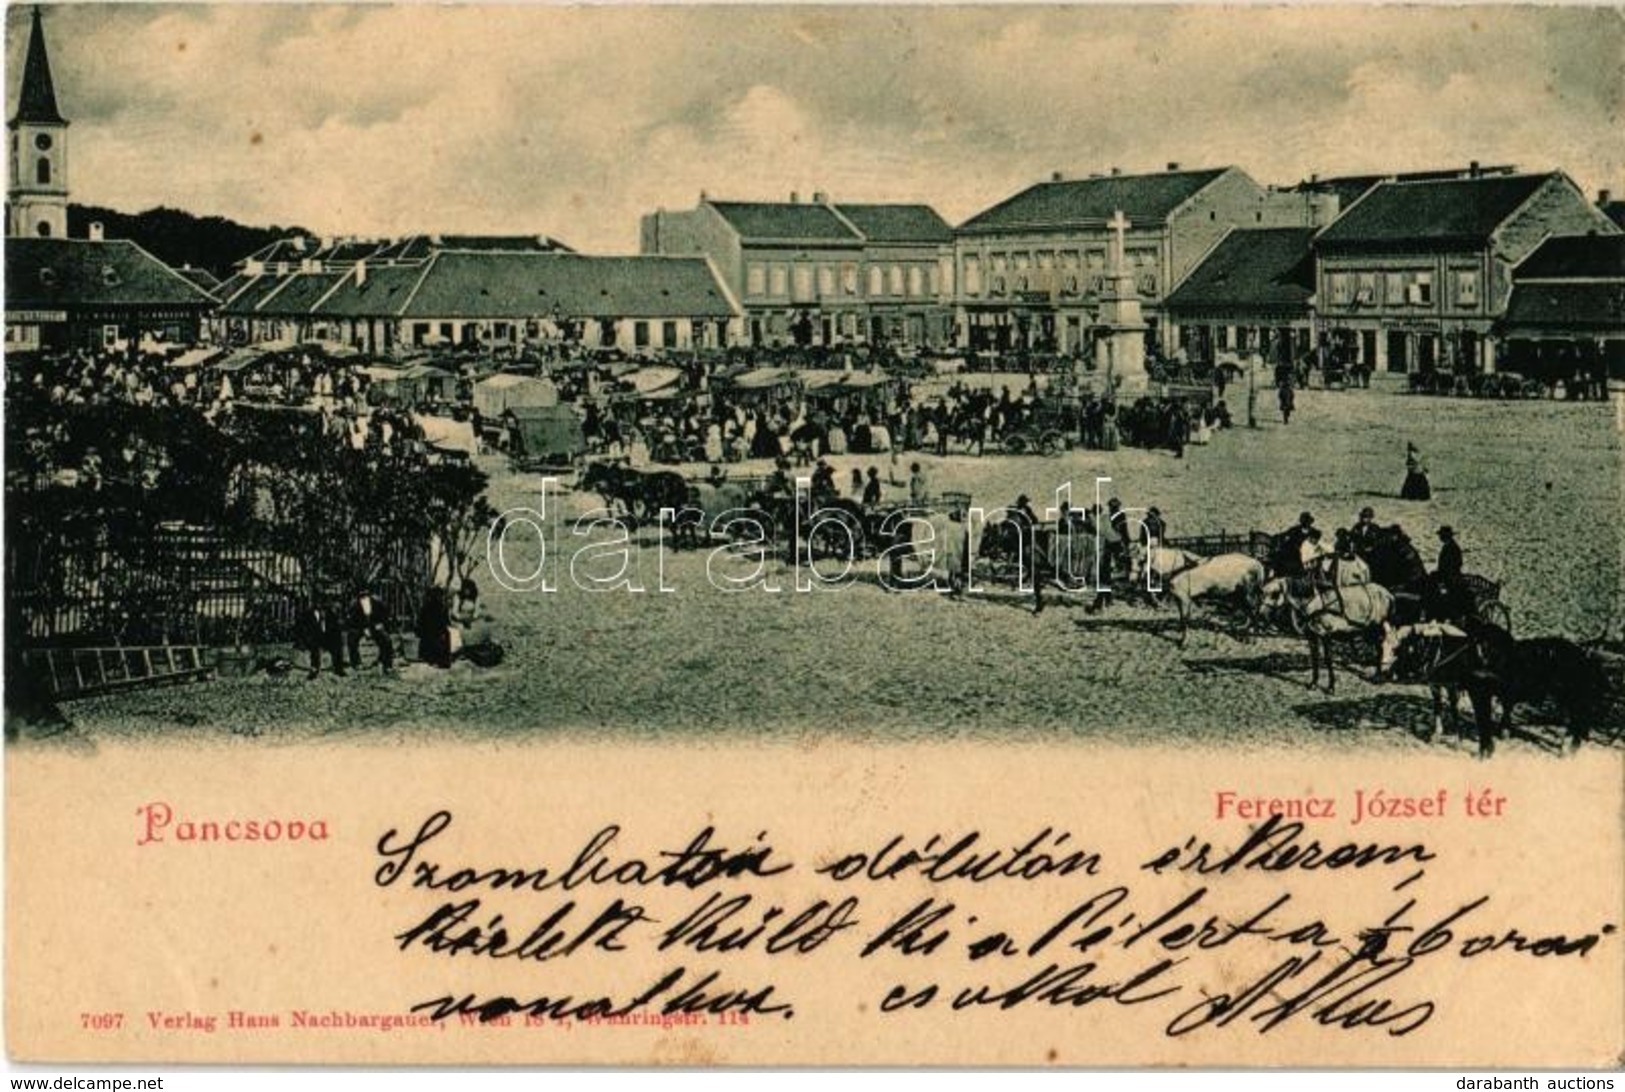 darabanth
Pancsova
Ferencz József tér
Szombaton délután érkezem,
kérlek küld ki a Pélert a ½6 orai
vonathoz. csokol
7097 Verlag Hans Nachbargauer, Wien 18/1, Währingstr. 114
delcampe.net
darabanth auctions